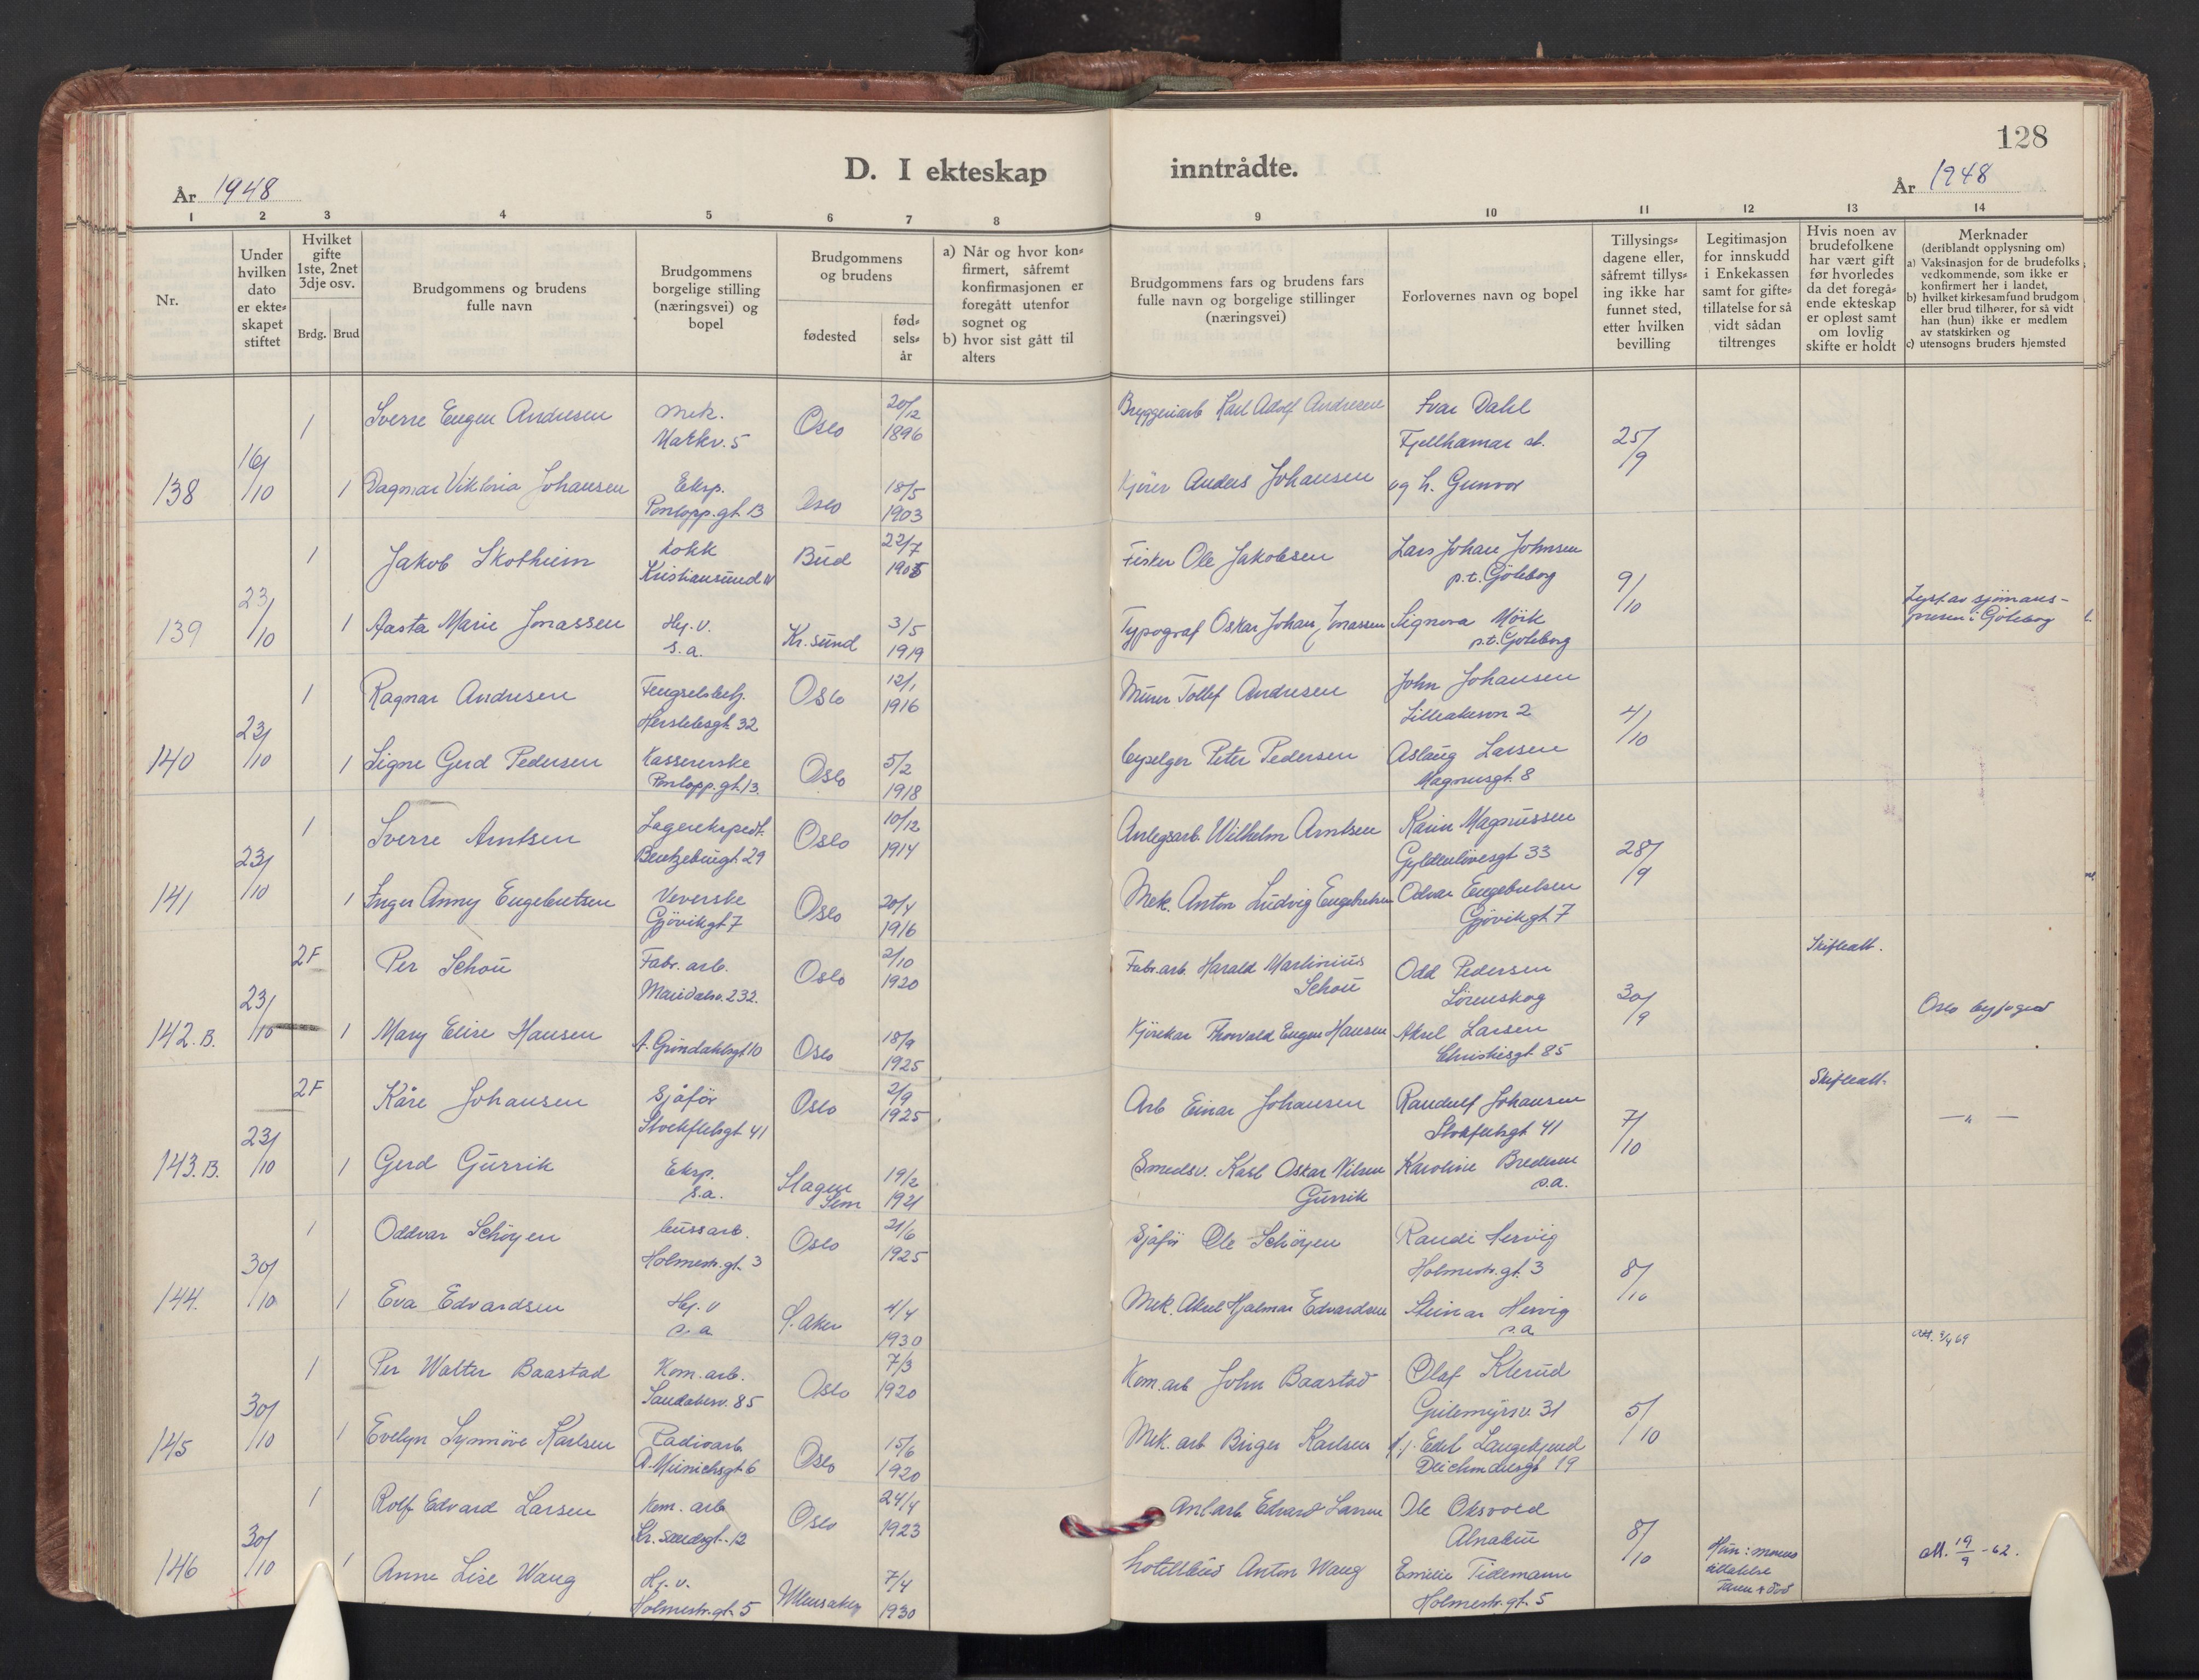 128
D. I ekteskap inntrådte.
År 1948
År 1948
1 2 3 4 5 6 7 8 9 10 11 12 13 14
Nr.
Under hvilken dato er ekteskapet stiftet
Hvilket gifte 1ste, 2net 3dje osv.
Brdg. Brud
Brudgommens og brudens fulle navn
Brudgommens borgelige stilling (næringsvei) og bopel
Brudgommens og brudens
fødested
fødselsår
a) Når og hvor konfirmert, såfremt konfirmasjonen er foregått utenfor sognet og
b) hvor sist gått til alters
Brudgommens fars og brudens fars fulle navn og borgelige stillinger (næringsvei)
Forlovernes navn og bopel
Tillysingsdagene eller, såfremt tillysing ikke har funnet sted, etter hvilken bevilling
Legitimasjon for innskudd i Enkekassen samt for giftetillatelse for så vidt sådan tiltrenges
Hvis noen av brudefolkene har vært gift før hvorledes da det foregående ekteskap er opløst samt om lovlig skifte er holdt
Merknader (deriblandt opplysning om)
a) Vaksinasjon for de brudefolks vedkommende, som ikke er konfirmert her i landet,
b) hvilket kirkesamfund brudgom eller brud tilhører, for så vidt han (hun) ikke er medlem av statskirken og
c) utensogns bruders hjemsted
1 Sverre Eugen Andresen mek. Markv. 5 Oslo 20/12 1896 Bryggeriarb Karl Adolf Andresen Ivar Dahl Fjellhamar st. 25/9
138 16/10 1 Dagmar Viktoria Johansen Eksp. Pontopp.gt. 13 Oslo 18/5 1903 Kjører Anders Johansen og h. Gunvor
1 Jakob Skotheim Kokk Kristiansund N Bud 22/7 1905 Fisker Ole Jakobsen Lars Johan Johnsen p.t. Göteborg 9/10
139 23/10 1 Aasta Marie Jonassen Hj.v. s.a. Kr.sund 3/5 1919 Typograf Oskar Johan Jonassen Signora Mörk p.t. Göteborg
1 Ragnar Andresen Fengselsbetj. Herslebsgt. 32 Oslo 12/1 1916 Murer Tollef Andresen John Johansen 4/10
140 23/10 1 Signe Gerd Pedersen Kassererske Pontopp.gt. 13. Oslo 5/2 1918 Peter Pedersen Aslaug Larsen Magnusgt. 8
1 Sverre Arntsen Lagerekspedt. Bentzebrugt. 29 Oslo 10/12 1914 Anlegsarb. Wilhelm Arntsen Karin Magnussen Gyldenlövesgt 33 28/9
141 23/10 1 Inger Anny Engebretsen Veverske Gjövikgt 7 Oslo 20/4 1916 Mek. Anton Ludvig Engebretsen Odvar Engebretsen Gjövikgt 7
2F Per Schou Fabr. arb. Maridalsv. 232. Oslo 2/10 1920 Fabr.arb. Harald Martinius Schou Odd Pedersen Lörenskog 30/9 Skifteatt.
142.B. 23/10 1 Mary Elise Hansen A. Grindahlsgt 10 Oslo 18/9 1925 Kjörekar Thorvald Eugen Hansen Aksel Larsen Christiesgt. 85 Oslo byfogd
2F Kåre Johansen Sjåför Stockfletsgt. 41 Oslo 2/9 1925 Arb Einar Johansen Randulf Johansen Stokfletsgt 41 7/10 Skifteatt. — „ —
143.B. 23/10 1 Gerd Gurrik Eksp. s.a. Slagen Sem 19/2 1921 Smedsv. Karl Oskar Nilsen Gurrik Karoline Bredesen s.a.
1 Oddvar Schöyen bussarb. Holmestr.gt. 3 Oslo 21/6 1925 Sjåför Ole Schöyen Randi Hervig Holmestr.gt. 3 8/10
144. 30/10 1 Eva Edvardsen Hj.v s.a Ö. Aker 4/4 1930 Mek. Aksel Hjalmar Edvardsen Steinar Hervig s.a.
1 Per Walter Baastad Kom.arb. Sandakerv. 85 Oslo 7/3 1920 Kom.arb John Baastad Olaf Klerud 5/10
145 30/10 1 Evelyn Synnöve Karlsen Radioarb. A. Munichsgt. 6 Oslo 15/6 1920 Mek. arb Birger Karlsen Edel Langekjend Deichmansgt 19
1 Rolf Edvard Larsen Kom. arb Kr. sandsgt. 12 Oslo 24/4 1923 Anl.arb. Edvard Larsen Ole Oksvold Alnabru 8/10
146 30/10 1 Anne Lise Wang Hj.v. Holmestr.gt. 5 Ullensaker 7/4 1930 Anton Wang Emilie Tidemann Holmestr.gt. 5 att. 19/9 -62.